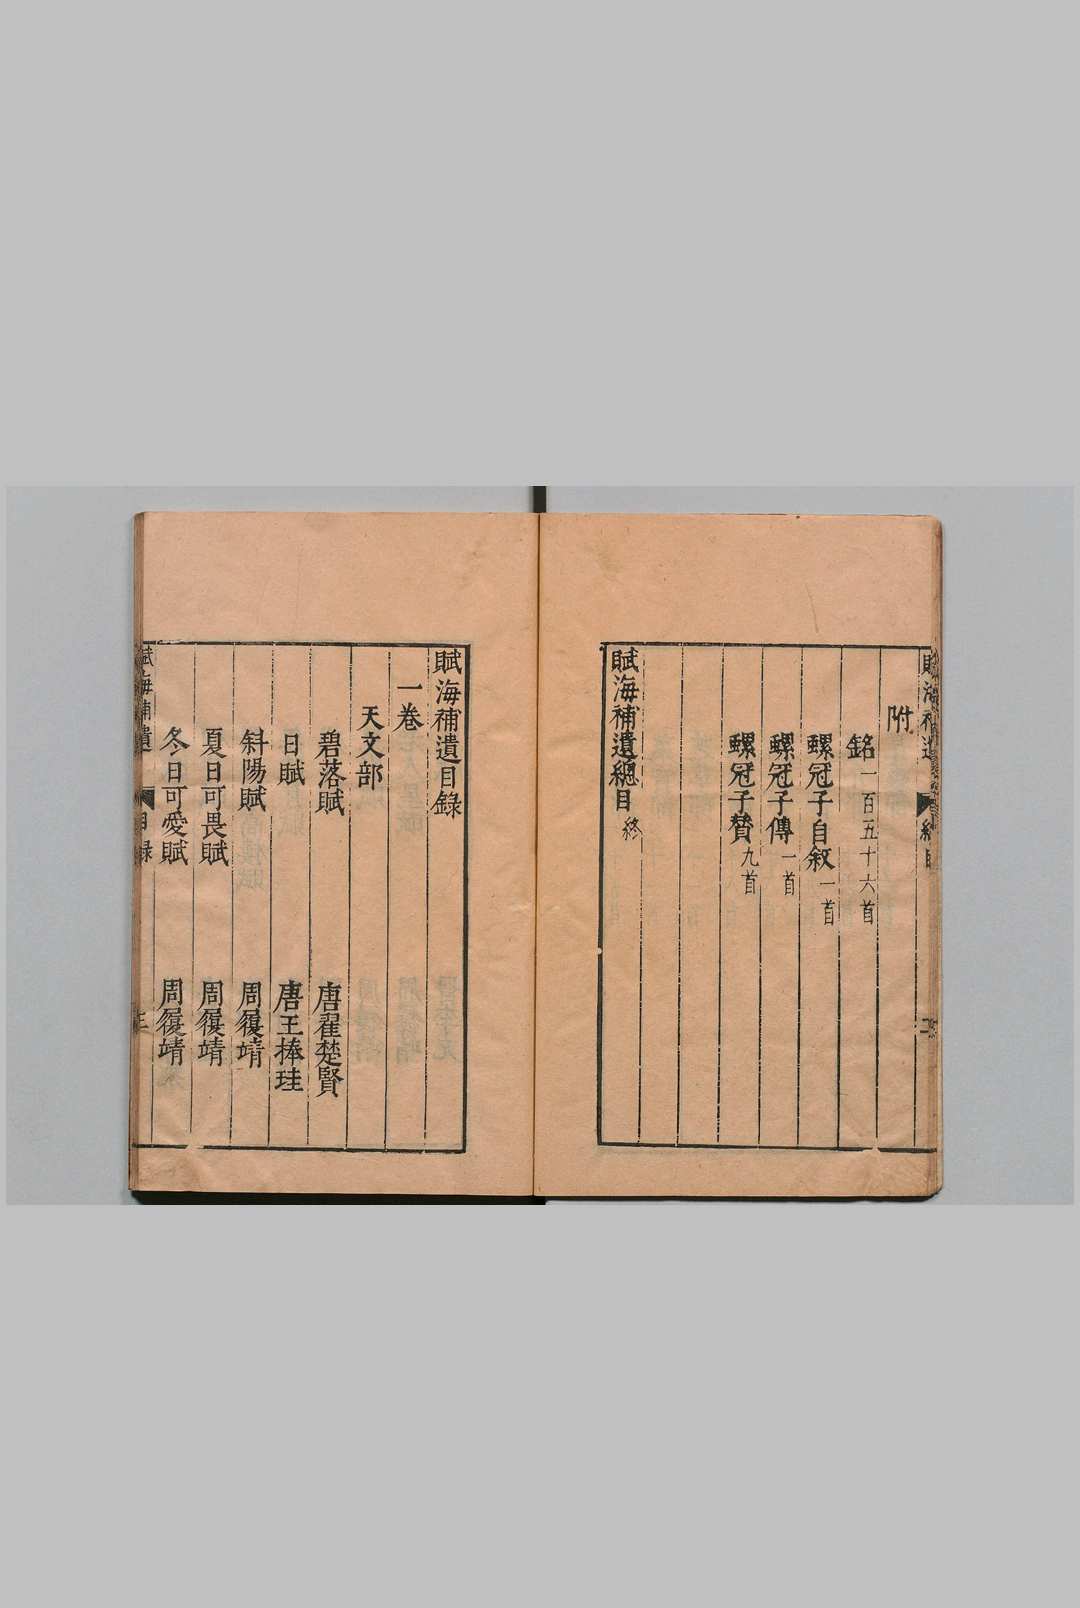 附
銘一百五十六首
螺冠子自叙一首
螺冠子傳一首
螺冠子贊九首
賦海補遺總目終
賦海補遺目錄
一卷
天文部
碧落賦 唐翟楚賢
日賦 唐王捧珪
斜陽賦 周履靖
夏日可畏賦 周履靖
冬日可愛賦 周履靖
賦海補遺 目錄